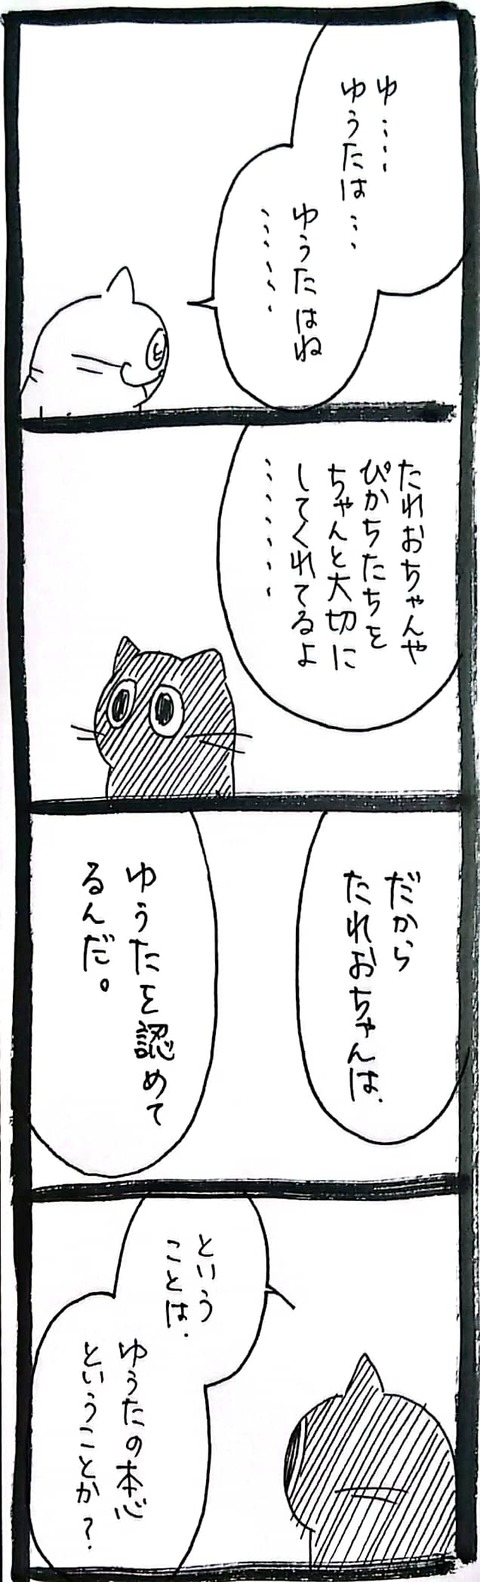 ゆ‥‥
ゆうたは…
ゆうたはね
‥‥‥
たれおちゃんや
ぴかちたちを
ちゃんと大切に
してくれてるよ
‥‥‥‥
だから
たれおちゃんは、
ゆうたを認めて
るんだ。
という
ことは、
ゆうたの本心
ということか?